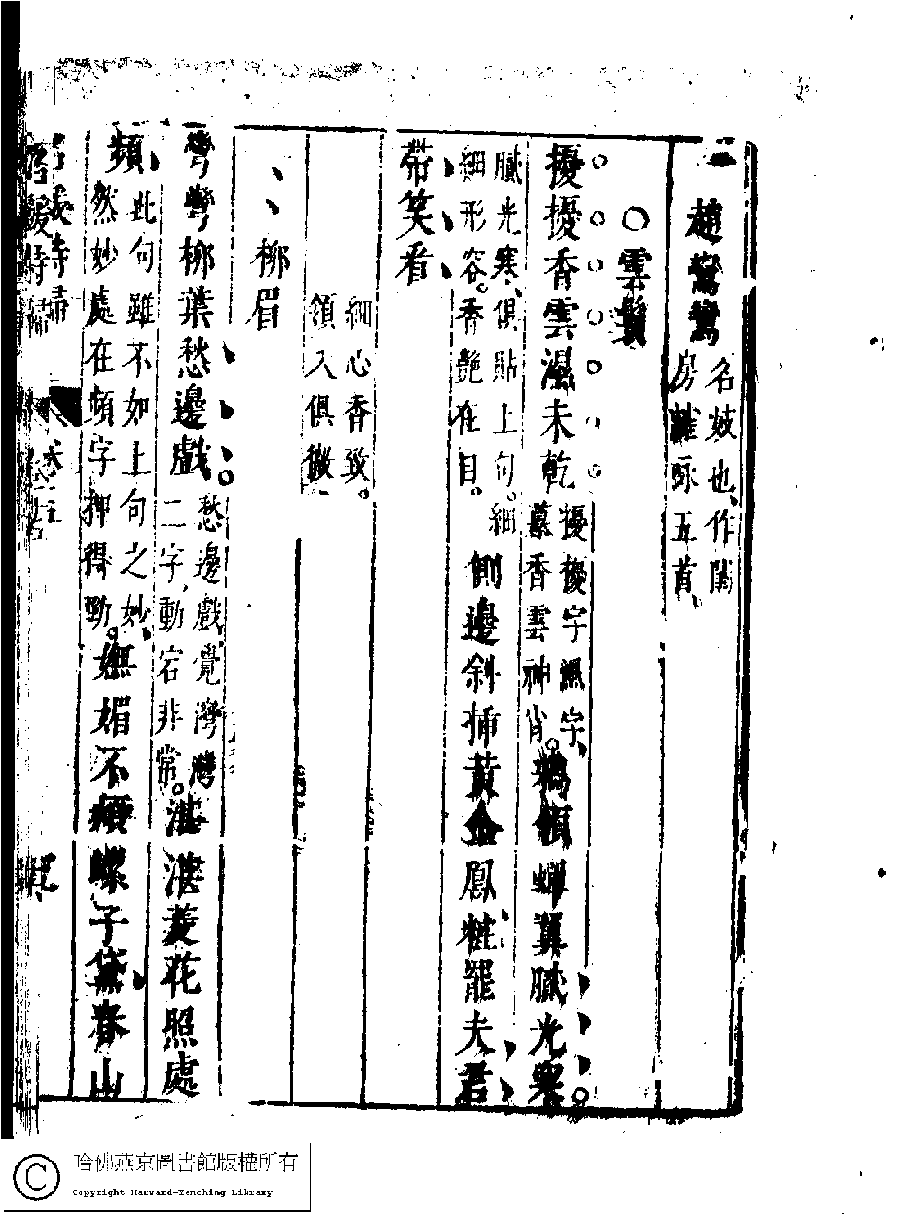 趙鸞鸞名妓也、作閨房雜咏五首、
○雲鬟
擾擾香雲濕未乾擾擾字濕字、摹香雲神肖。鴉領蟬翼膩光寒。
膩光寒、俱貼上句。細細形容。香艶在目。側邊斜揷黃金鳳粧罷夫君
帶笑看、
細心香致。領入俱微、
柳眉
彎彎柳葉愁邊戲。愁邊戲、覺灣灣二字、動宕非常。湛湛菱花照處
頻、此句雖不如上句之妙、然妙處在頻字押得勁。嫵媚不煩螺子黛春山
哈佛燕京圖書館版權所有
Copyright Harvard-Yenching Library